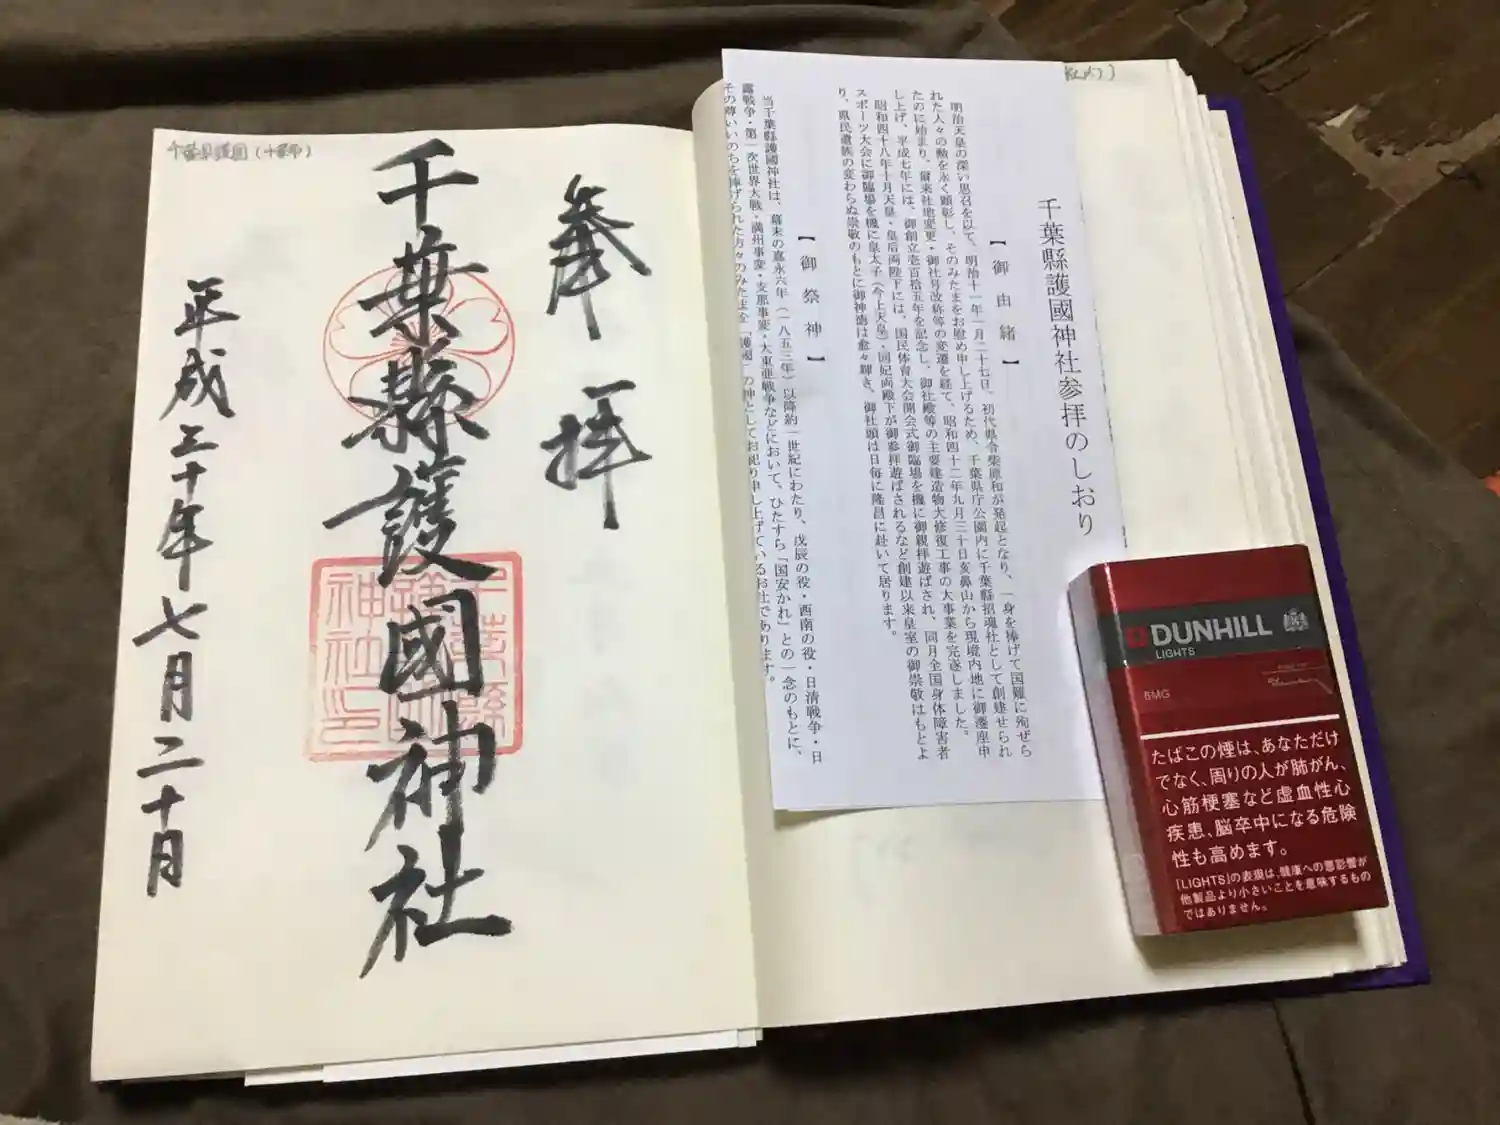 千葉県護国(千葉市)
奉拝
千葉縣護國神社
平成三十年七月二十日
千葉縣護國神社印
千葉縣護國神社参拝のしおり
【御由緒】
明治天皇の深い思召を以て、明治十一年一月二十七日、初代県令柴原和が発起となり、一身を捧げて国難に殉ぜら
れた人々の勲を永く顕彰し、そのみたまをお慰め申し上げるため、千葉県庁公園内に千葉縣招魂社として創建せられ
たのに始まり、爾来社地変更・御社号改称等の変遷を経て、昭和四十二年九月三十日亥鼻山から現境内地に御遷座申
し上げ、平成七年には、御創立壱百拾五年を記念し、御社殿等の主要建造物大修復工事の大事業を完遂しました。
昭和四十八年十月天皇・皇后両陛下には、国民体育大会開会式御臨場を機に御親拝遊ばされ、同月全国身体障害者
スポーツ大会に御臨場を機に皇太子(今上天皇)・同妃両殿下が御参拝遊ばされるなど創建以来皇室の御崇敬はもとよ
り、県民遺族の変わらぬ崇敬のもとに御神徳は愈々輝き、御社頭は日毎に隆昌に赴いて居ります。
【御祭神】
当千葉縣護國神社は、幕末の嘉永六年(一八五三年)以降約一世紀にわたり、戊辰の役・西南の役・日清戦争・日
露戦争・第一次世界大戦・満州事変・支那事変・大東亜戦争などにおいて、ひたすら「国安かれ」との一念のもとに、
その尊いいのちを捧げられた方々のみたまを「護國」の神としてお祀り申し上げているお社であります。
DUNHILL
LIGHTS
8MG
たばこの煙は、あなただけ
でなく、周りの人が肺がん、
心筋梗塞など虚血性心
疾患、脳卒中になる危険
性も高めます。
「LIGHTS」の表現は、健康への悪影響が
他製品より小さいことを意味するもの
ではありません。